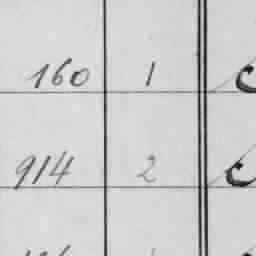 160 1
914 2